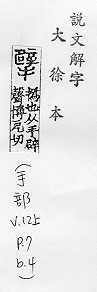 說文解字
大徐本
擘
撝也从手辟
聲博戹切
(手部
V.12上
P.7
b.4)